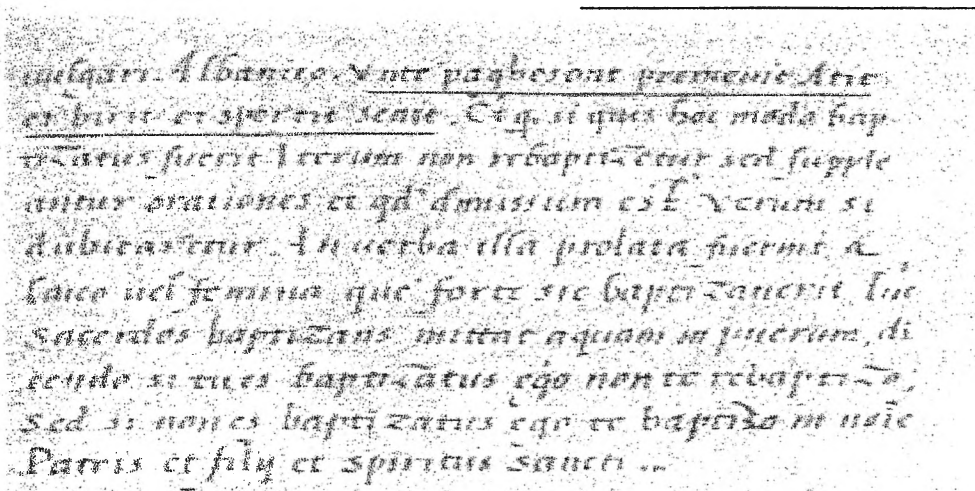 uulgari Albanico. Vnte paghesont premenit Atit
et birit et spertit senit. Et q. si quis hoc modo bap
tizatus fuerit Iterum non rebaptizetur sed supple
antur orationes et qd' omissum est Verum si
dubitaretur An uerba illa prolata fuerint a
laico uel femina que forte sic baptizauerit tuc
sacerdos baptizans mittat aquam in puerum, di
cendo si tu es baptizatus ego non te rebaptizo,
Sed si non es baptizatus ego te baptizo in noie
Patris et filij et spiritus Sancti ..